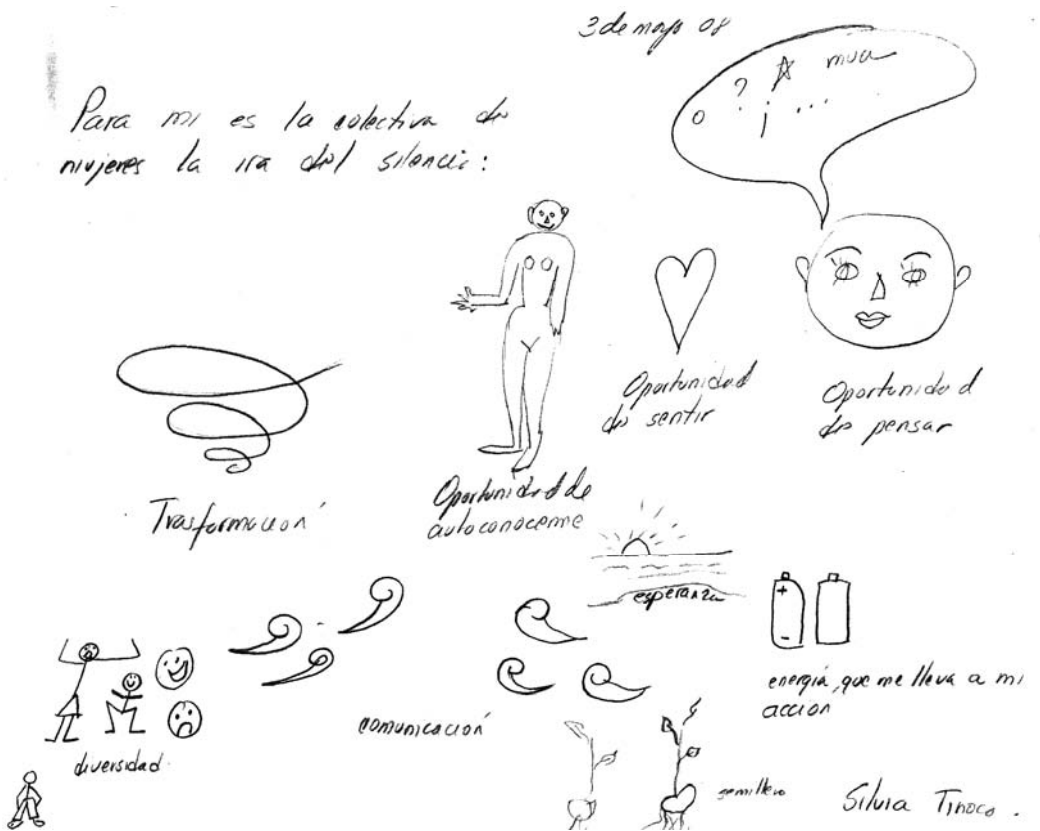 3 de mayo 08
Para mi es la colectiva de
mujeres la ira del silencio:
o ? mua
¡ ...
Oportunidad
de sentir
Oportunidad
de pensar
Trasformación
Oportunidad de
autoconocerme
esperanza
+
-
energía, que me lleva a mi
acción
comunicación
diversidad.
semillero
Silvia Tinoco.